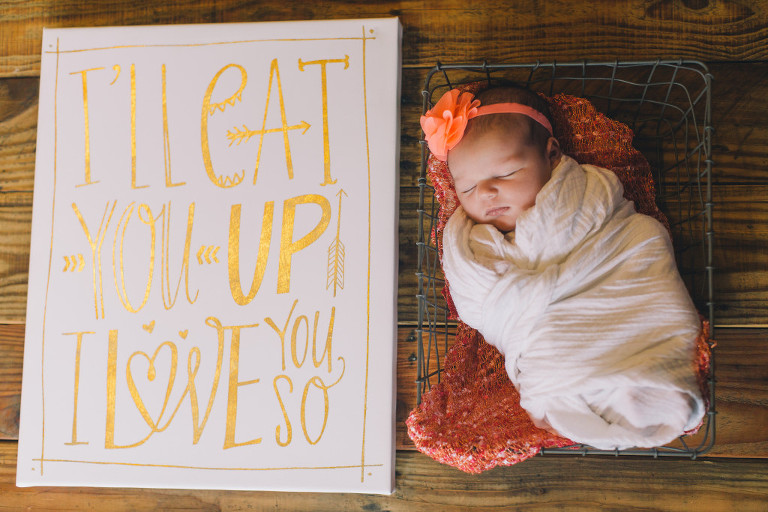 I'LL EAT
YOU UP
I LOVE YOU SO